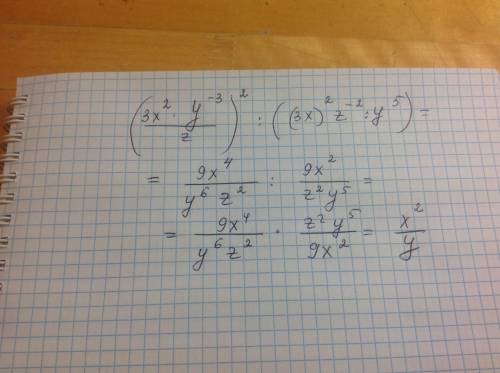 (3x² · y⁻³ / z)² : ((3x)² z⁻² : y⁵) =
= 9x⁴ / y⁶z² : 9x² / z²y⁵ =
= 9x⁴ / y⁶z² · z²y⁵ / 9x² = x² / y